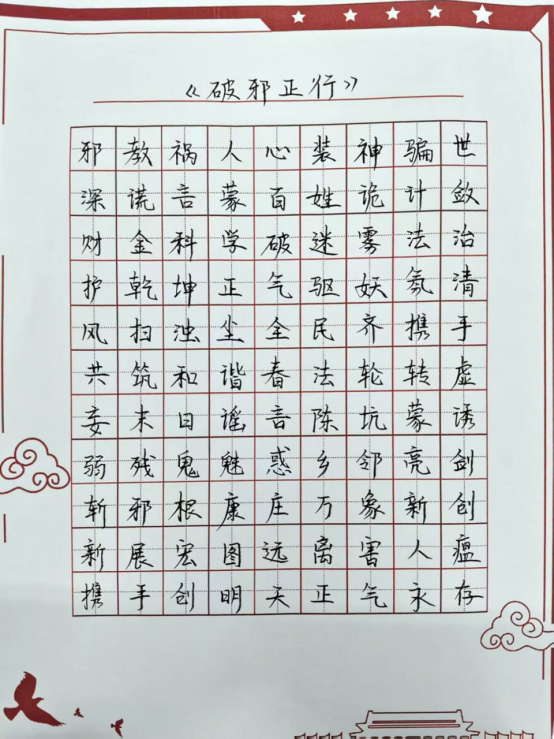 《破邪正行》
邪教祸人心装神骗世
深谎言蒙百姓诡计敛
财金科学破迷雾法治
护乾坤正气驱妖氛清
风扫浊尘全民齐携手
共筑和谐春法轮转虚
妄末日谣言陈坑蒙诱
弱残鬼魅惑乡邻亮剑
斩邪根康庄万象新创
新展宏图远离害人瘟
携手创明天正气永存